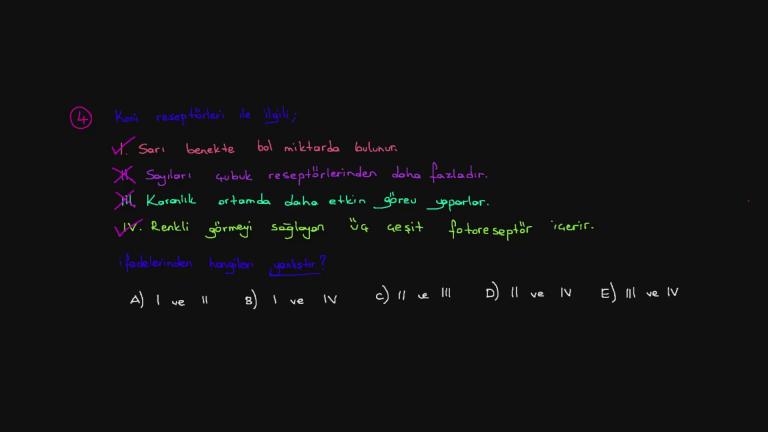 4 Koni reseptörleri ile ilgili;
I. Sarı benekte bol miktarda bulunur.
II. Sayıları çubuk reseptörlerinden daha fazladır.
III. Karanlık ortamda daha etkin görev yaparlar.
IV. Renkli görmeyi sağlayan üç çeşit fotoreseptör içerir.
ifadelerinden hangileri yanlıştır?
A) I ve II B) I ve IV C) II ve III D) II ve IV E) III ve IV